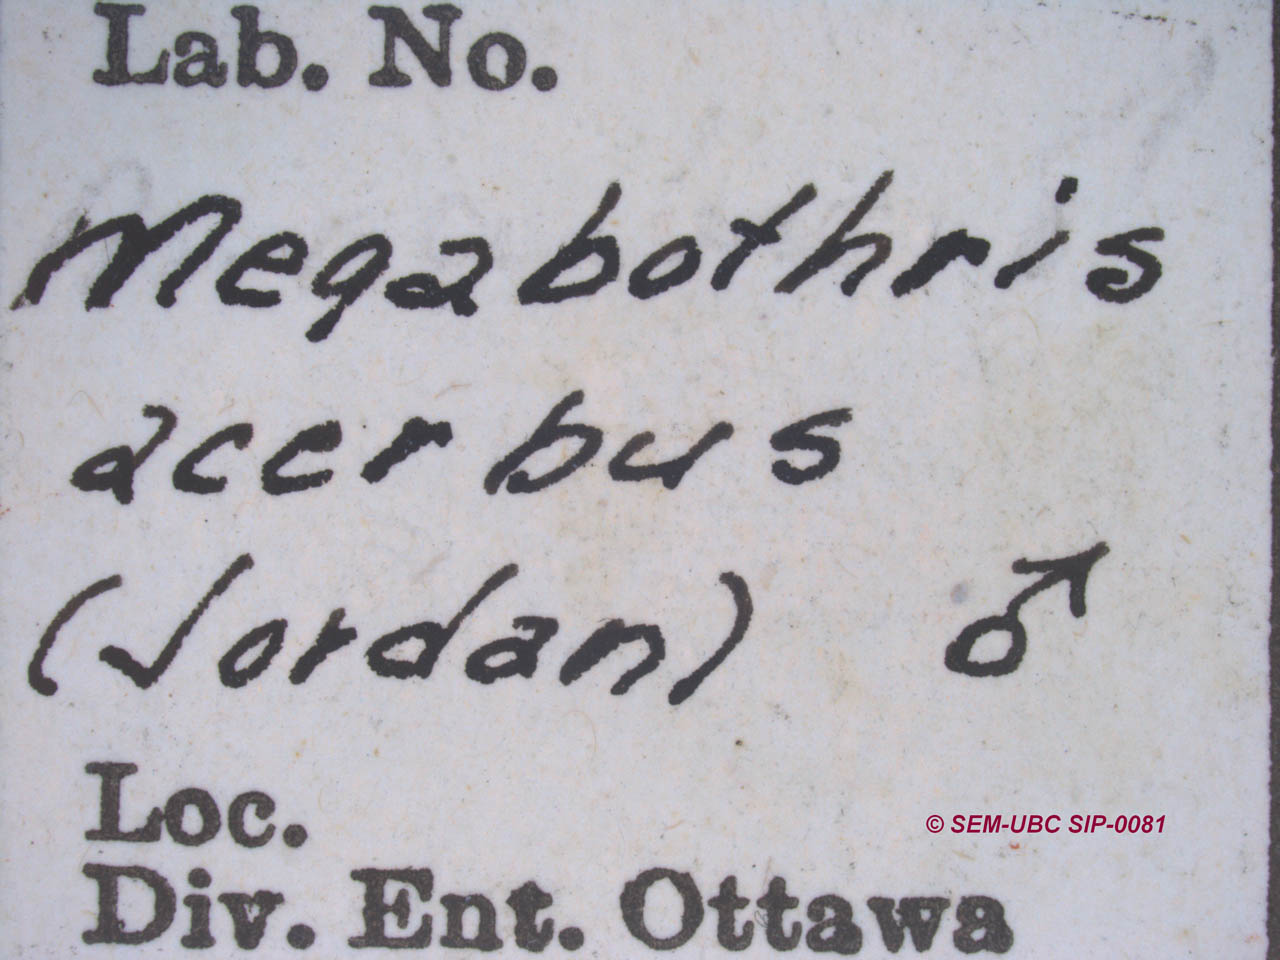 Lab. No.
Megabothris
acerbus
(Jordan) ♂
Loc.
© SEM-UBC SIP-0081
Div. Ent. Ottawa